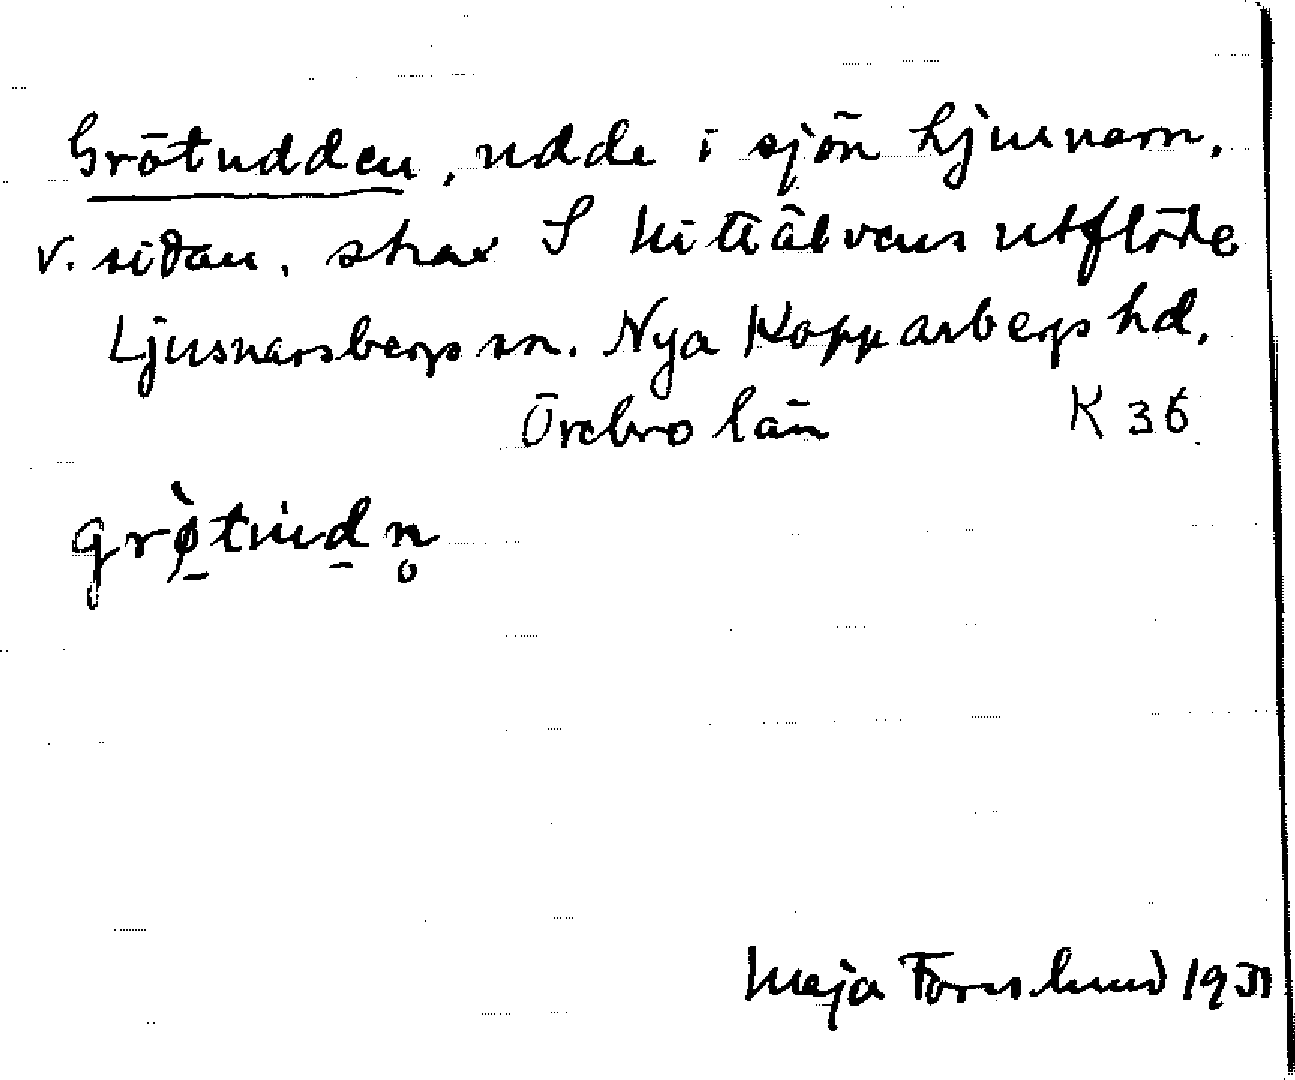 Grötudden, udde i sjön Ljusnarn,
v. sidan, strax S Hittälvens utflöde
Ljusnarsbergs sn. Nya Kopparbergs hd.
Örebro län K 36
grø̀tudn̥
Maja Forsslund 1931